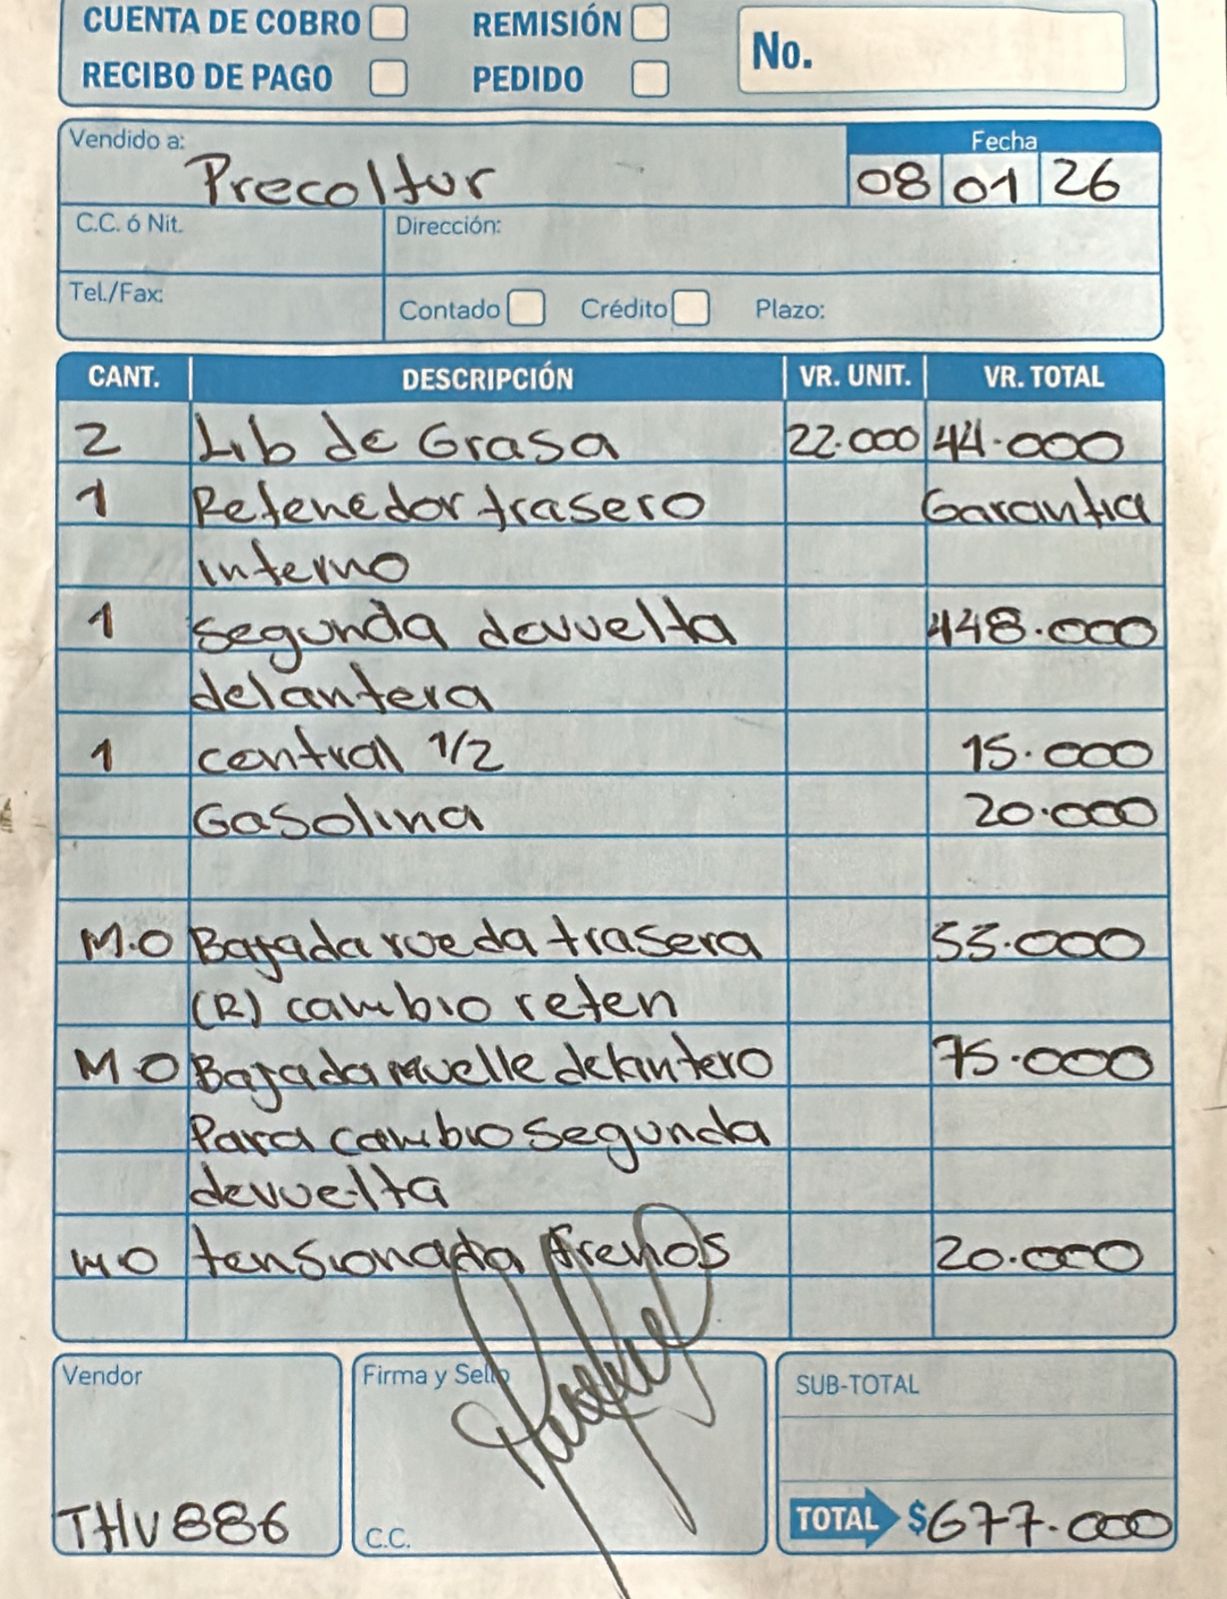 CUENTA DE COBRO REMISIÓN No.
RECIBO DE PAGO PEDIDO
Vendido a: Precoltur Fecha
08 01 26
C.C. ó Nit. Dirección:
Tel./Fax: Contado Crédito Plazo:
CANT. DESCRIPCIÓN VR. UNIT. VR. TOTAL
2 Lib de Grasa 22.000 44.000
1 Retenedor trasero Garantia
interno
1 segunda devuelta 448.000
delantera
1 central 1/2 15.000
Gasolina 20.000
M.O Bajada rueda trasera 55.000
(R) cambio reten
M O Bajada muelle delantero 75.000
Para cambio segunda
devuelta
MO tensionada frenos 20.000
Vendor Firma y Sello SUB-TOTAL
THV886 C.C. TOTAL $677.000